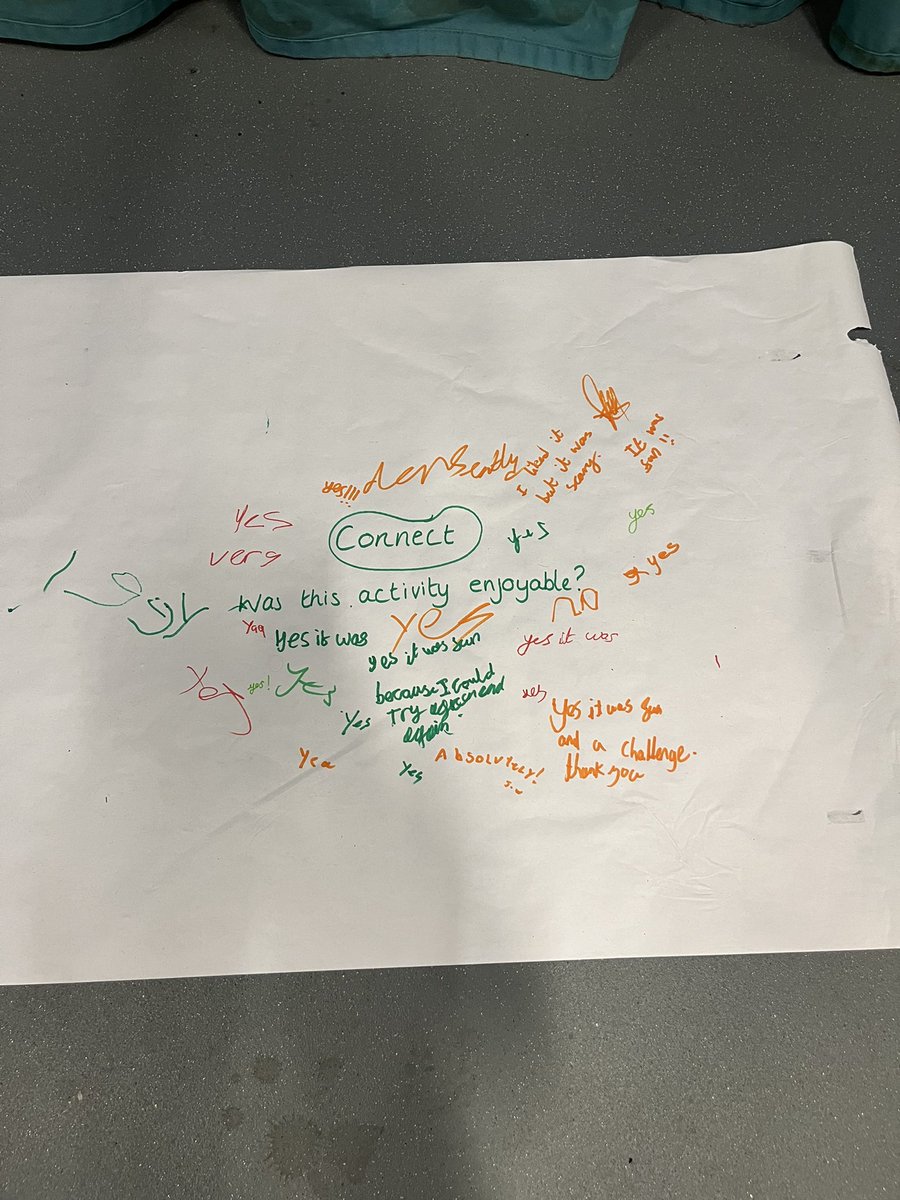 yes!!!
I liked it
but it was
scary.
It was
fun!!
yes
very
Connect
yes
yes
Was this activity enjoyable?
yes
yes it was
yes
yes it was fun
because I could
Try again and
again.
yes it was
yes!
Yes
Yes
yes
Yes it was fun
and a challenge.
thank you
Yea
Yes
Absolutely!